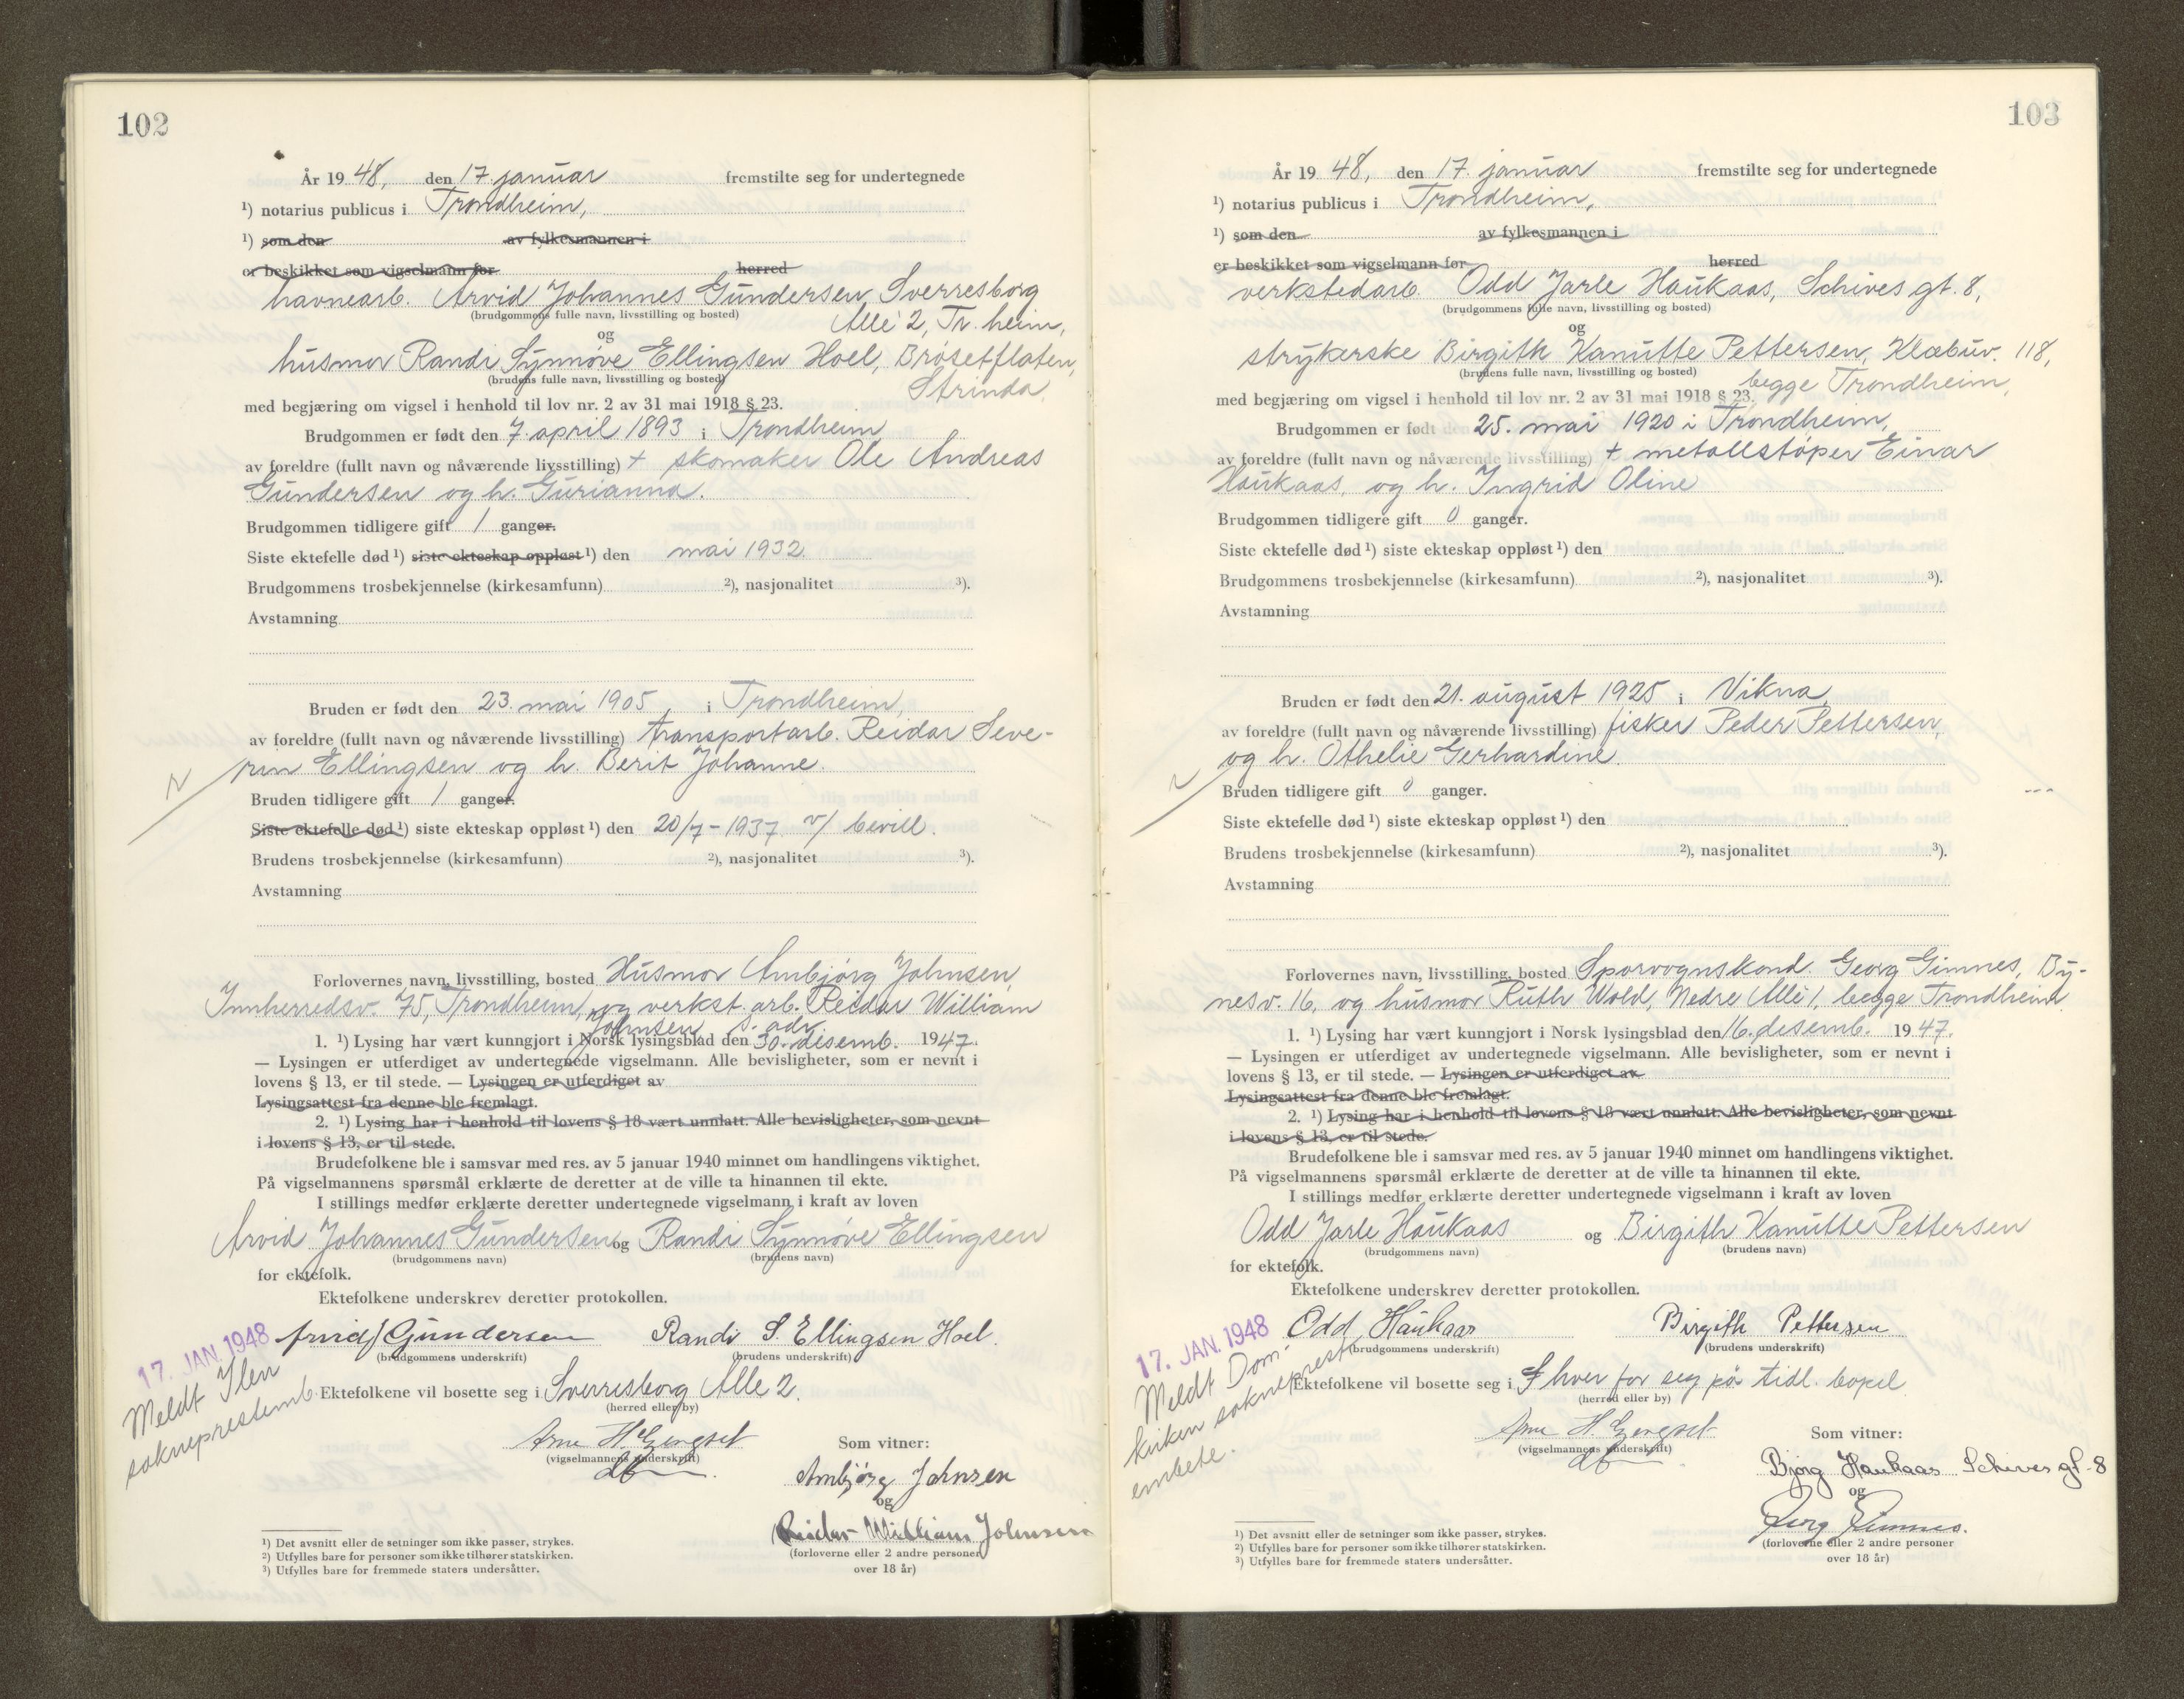 102
År 19 48, den 17. januar fremstilte seg for undertegnede
¹) notarius publicus i Trondheim,
¹) som den av fylkesmannen i
er beskikket som vigselmann for herred
havnearb. Arvid Johannes Gundersen, Sverresborg
(brudgommens fulle navn, livsstilling og bosted) Allé 2, Tr.heim,
og
husmor Randi Synnøve Ellingsen Hoel, Brøsetflaten,
(brudens fulle navn, livsstilling og bosted) Strinda,
med begjæring om vigsel i henhold til lov nr. 2 av 31 mai 1918 § 23.
Brudgommen er født den 7. april 1893 i Trondheim
av foreldre (fullt navn og nåværende livsstilling) + skomaker Ole Andreas
Gundersen og h. Gurianna.
Brudgommen tidligere gift 1 ganger.
Siste ektefelle død ¹) siste ekteskap oppløst ¹) den mai 1932
Brudgommens trosbekjennelse (kirkesamfunn) ²), nasjonalitet ³).
Avstamning
Bruden er født den 23. mai 1905, i Trondheim,
av foreldre (fullt navn og nåværende livsstilling) transportarb. Reidar Seve-
rin Ellingsen og h. Berit Johanne.
Bruden tidligere gift 1 ganger.
Siste ektefelle død ¹) siste ekteskap oppløst ¹) den 20/7-1937 v/ bevill.
Brudens trosbekjennelse (kirkesamfunn) ²), nasjonalitet ³).
Avstamning
Forlovernes navn, livsstilling, bosted Husmor Ambjørg Johnsen,
Innherredsv. 75, Trondheim, og verkst.arb. Reidar William
Johnsen s. adr.
1. ¹) Lysing har vært kunngjort i Norsk lysingsblad den 30. desemb. 1947.
— Lysingen er utferdiget av undertegnede vigselmann. Alle bevisligheter, som er nevnt i
lovens § 13, er til stede. — Lysingen er utferdiget av
Lysingsattest fra denne ble fremlagt.
2. ¹) Lysing har i henhold til lovens § 18 vært unnlatt. Alle bevisligheter, som nevnt
i lovens § 13, er til stede.
Brudefolkene ble i samsvar med res. av 5 januar 1940 minnet om handlingens viktighet.
På vigselmannens spørsmål erklærte de deretter at de ville ta hinannen til ekte.
I stillings medfør erklærte deretter undertegnede vigselmann i kraft av loven
Arvid Johannes Gundersen og Randi Synnøve Ellingsen
(brudgommens navn) (brudens navn)
for ektefolk.
Ektefolkene underskrev deretter protokollen.
17. JAN. 1948 Arvid J Gundersen Randi S. Ellingsen Hoel.
(brudgommens underskrift) (brudens underskrift)
Meldt Ilen
sokneprestemb.
Ektefolkene vil bosette seg i Sverresborg Allé 2.
(herred eller by)
Som vitner:
(vigselmannens underskrift)
Ambjørg Johnsen
og
Reidar William Johnsen
(forloverne eller 2 andre personer
over 18 år)
¹) Det avsnitt eller de setninger som ikke passer, strykes.
²) Utfylles bare for personer som ikke tilhører statskirken.
³) Utfylles bare for fremmede staters undersåtter.
103
År 19 48, den 17. januar fremstilte seg for undertegnede
¹) notarius publicus i Trondheim,
¹) som den av fylkesmannen i
er beskikket som vigselmann for herred
verkstedarb. Odd Jarle Haukaas, Schives gt. 8,
(brudgommens fulle navn, livsstilling og bosted)
og
strykerske Birgith Kanutte Pettersen, Klæbuv. 118,
(brudens fulle navn, livsstilling og bosted) begge Trondheim,
med begjæring om vigsel i henhold til lov nr. 2 av 31 mai 1918 § 23.
Brudgommen er født den 25. mai 1920 i Trondheim,
av foreldre (fullt navn og nåværende livsstilling) + metallstøper Einar
Haukaas, og h. Ingrid Oline
Brudgommen tidligere gift 0 ganger.
Siste ektefelle død ¹) siste ekteskap oppløst ¹) den
Brudgommens trosbekjennelse (kirkesamfunn) ²), nasjonalitet ³).
Avstamning
Bruden er født den 21. august 1925 i Vikna,
av foreldre (fullt navn og nåværende livsstilling) fisker Peder Pettersen,
og h. Othelie Gerhardine.
Bruden tidligere gift 0 ganger.
Siste ektefelle død ¹) siste ekteskap oppløst ¹) den
Brudens trosbekjennelse (kirkesamfunn) ²), nasjonalitet ³).
Avstamning
Forlovernes navn, livsstilling, bosted Sporvognskond. Georg Gimnes, By-
nesv. 16, og husmor Ruth Wold, Nedre Allé 1, begge Trondheim
1. ¹) Lysing har vært kunngjort i Norsk lysingsblad den 16. desemb. 1947.
— Lysingen er utferdiget av undertegnede vigselmann. Alle bevisligheter, som er nevnt i
lovens § 13, er til stede. — Lysingen er utferdiget av
Lysingsattest fra denne ble fremlagt.
2. ¹) Lysing har i henhold til lovens § 18 vært unnlatt. Alle bevisligheter, som nevnt
i lovens § 13, er til stede.
Brudefolkene ble i samsvar med res. av 5 januar 1940 minnet om handlingens viktighet.
På vigselmannens spørsmål erklærte de deretter at de ville ta hinannen til ekte.
I stillings medfør erklærte deretter undertegnede vigselmann i kraft av loven
Odd Jarle Haukaas og Birgith Kanutte Pettersen
(brudgommens navn) (brudens navn)
for ektefolk.
Ektefolkene underskrev deretter protokollen.
17. JAN. 1948 Odd Haukaas Birgith Pettersen
(brudgommens underskrift) (brudens underskrift)
Meldt Dom-
kirken sokneprest
embete.
Ektefolkene vil bosette seg i hver for seg på tidl. bopel
(herred eller by)
Som vitner:
(vigselmannens underskrift)
Bjørg Haukaas Schives gt-8
og
Georg Gimnes.
(forloverne eller 2 andre personer
over 18 år)
¹) Det avsnitt eller de setninger som ikke passer, strykes.
²) Utfylles bare for personer som ikke tilhører statskirken.
³) Utfylles bare for fremmede staters undersåtter.